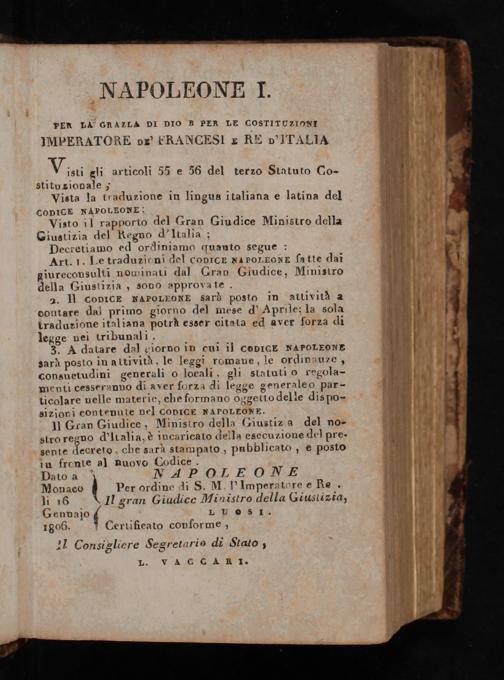 NAPOLEONE I.
PER LA GRAZLA DI DIO B PER LE COSTITUZIONI
IMPERATORE DE' FRANCESI E RE D'ITALIA
Visti gli articoli 55 e 56 del terzo Statuto Co-
stituzionale ;
Vista la traduzione in lingua italiana e latina del
CODICE NAPOLEONE;
Visto il rapporto del Gran Giudice Ministro della
Giustizia del Regno d'Italia ;
Decretiamo ed ordiniamo quanto segue :
Art. 1. Le traduzioni del CODICE NAPOLEONE fatte dai
giureconsulti nominati dal Gran Giudice, Ministro
della Giustizia , sono approvate .
2. Il CODICE NAPOLEONE sarà posto in attività a
contare dal primo giorno del mese d'Aprile; la sola
traduzione italiana potrà esser citata ed aver forza di
legge nei tribunali .
3. A datare dal giorno in cui il CODICE NAPOLEONE
sarà posto in attività, le leggi romane, le ordinanze ,
consuetudini generali o locali, gli statuti o regola-
menti cesseranno di aver forza di legge generale o par-
ticolare nelle materie, che formano oggetto delle dispo-
sizioni contenute nel CODICE NAPOLEONE.
Il Gran Giudice , Ministro della Giustizia del no-
stro regno d'Italia, è incaricato della esecuzione del pre-
sente decreto, che sarà stampato , pubblicato , e posto
in fronte al nuovo Codice .
Dato a NAPOLEONE
Monaco Per ordine di S. M. l'Imperatore e Re .
li 16 Il gran Giudice Ministro della Giustizia,
Gennajo LUOSI.
1806. Certificato conforme ,
Il Consigliere Segretario di Stato ,
L. VACCARI.